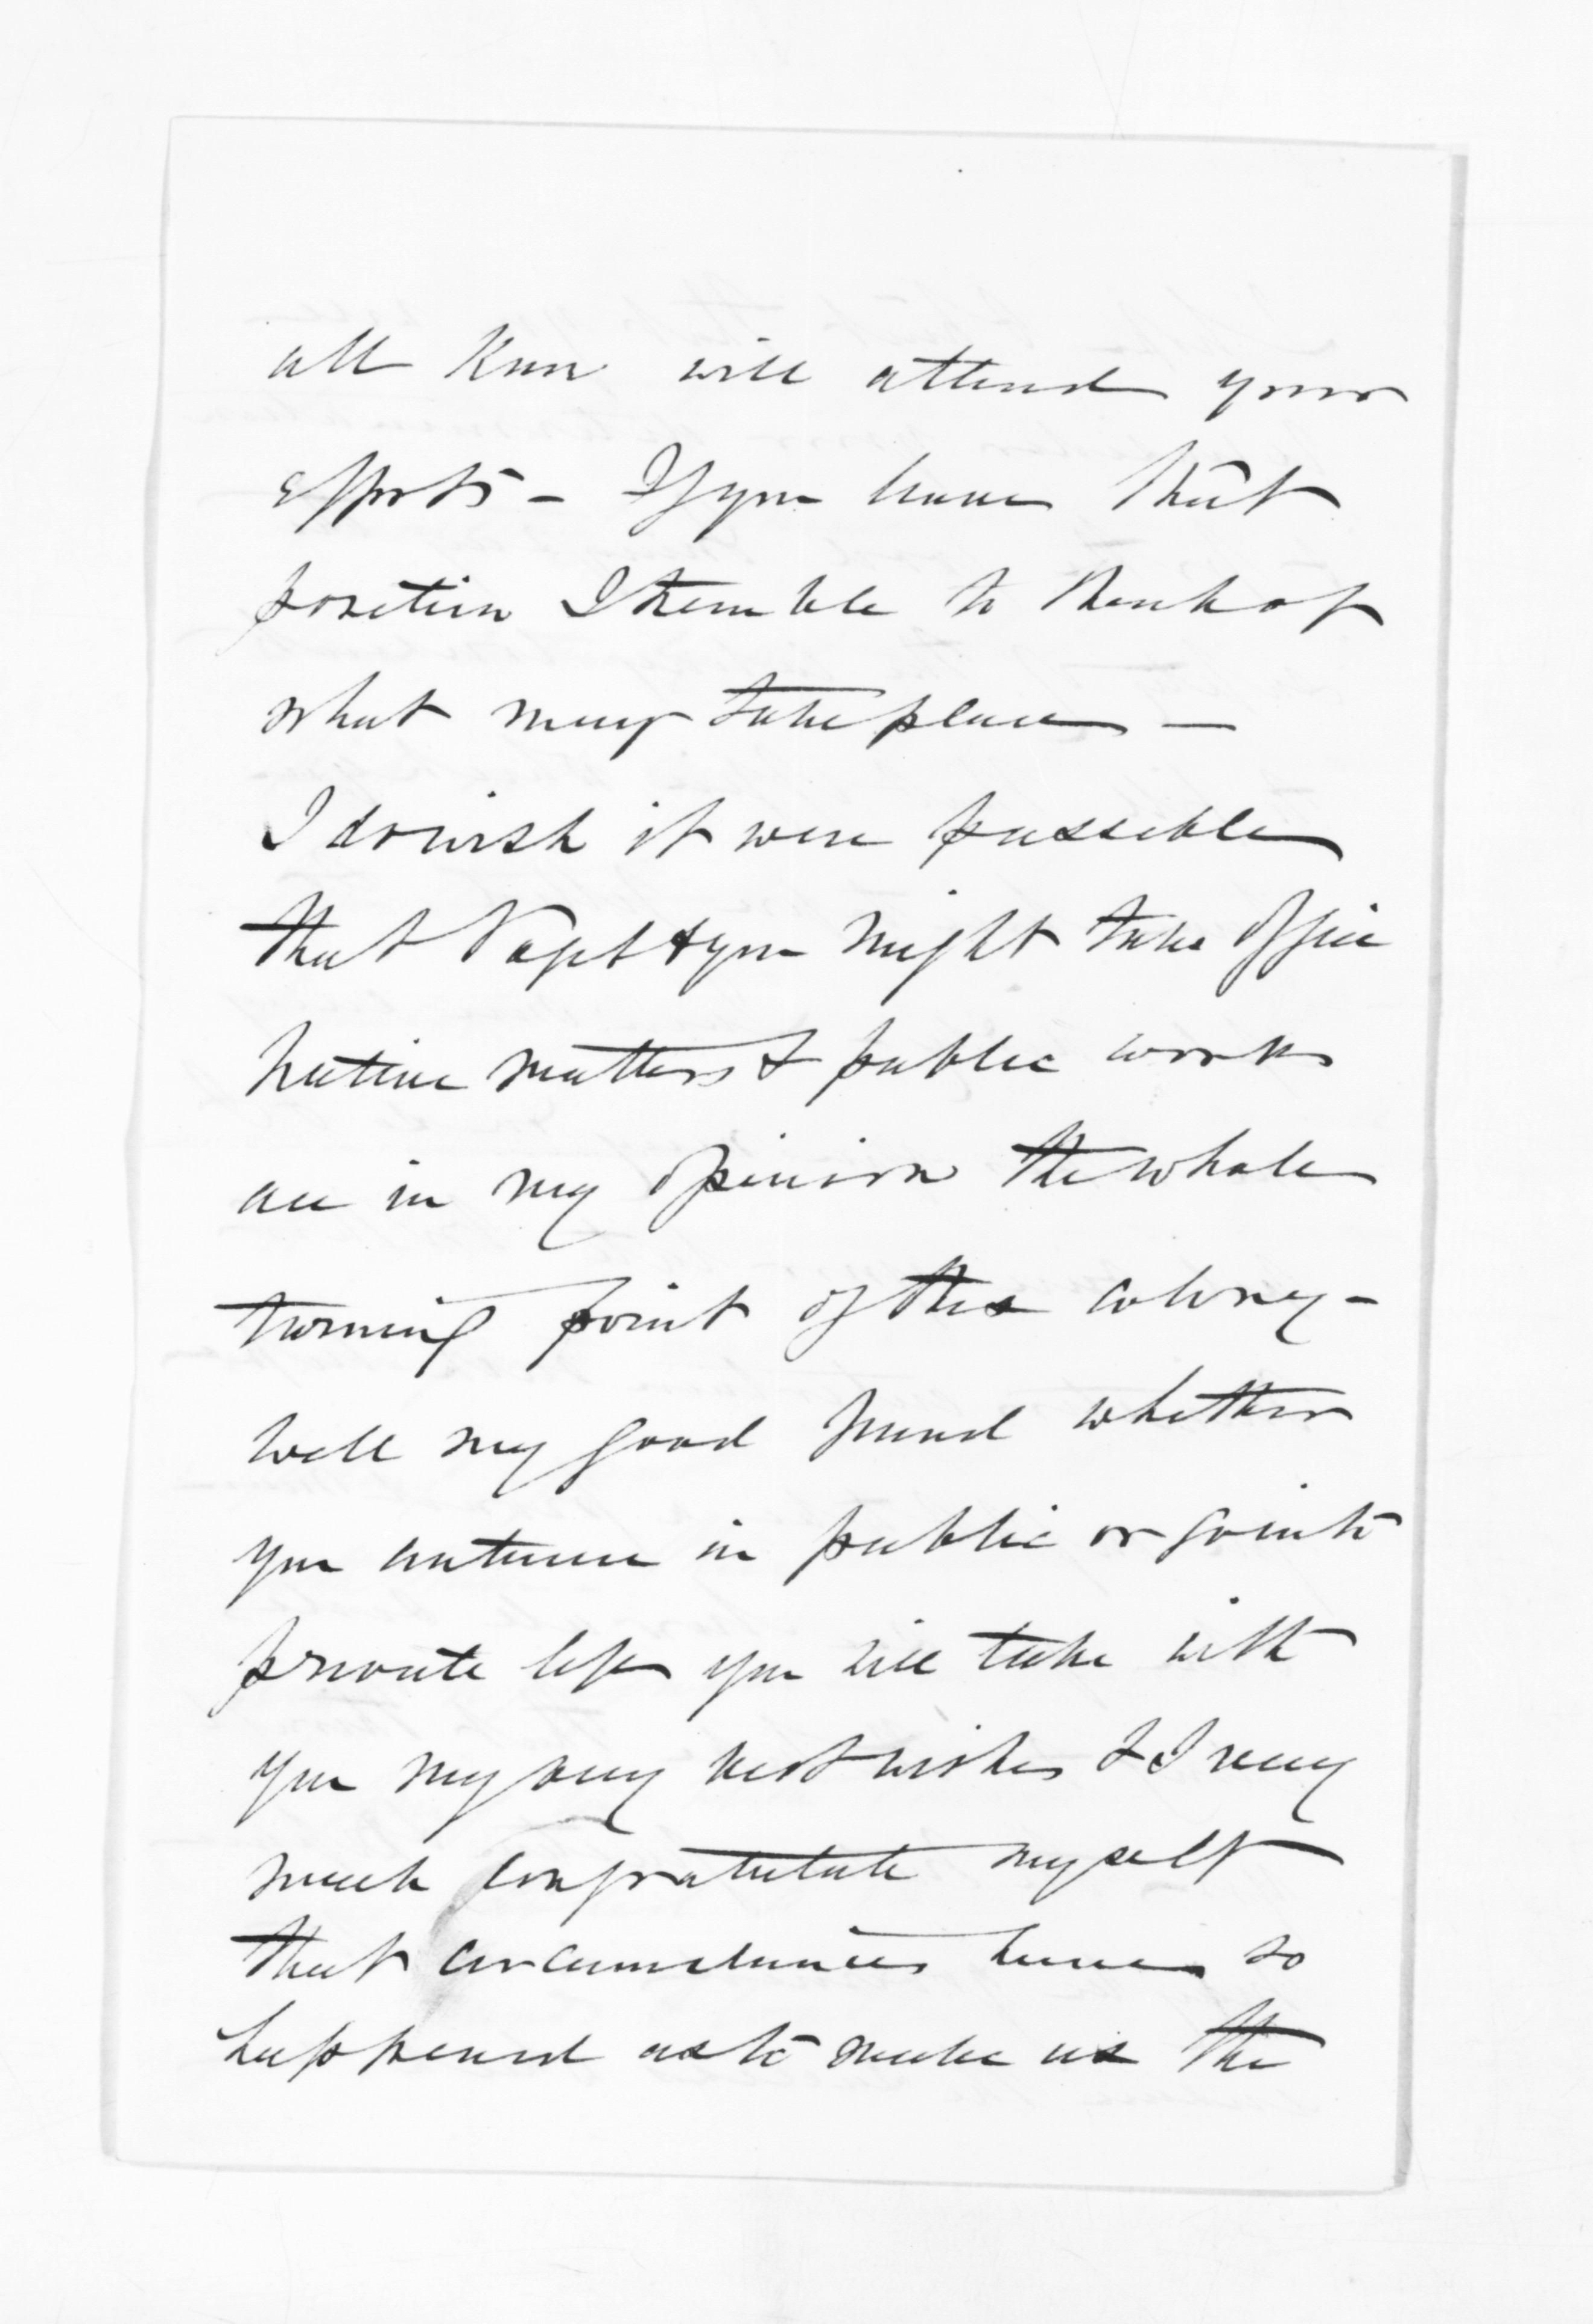 all know will attend your
efforts - If you leave that
position I tremble to think of
what may take place —
I do wish it were possible
that Vogel & you might take office
Native matters & public works
are in my opinion the whole
turning point of this colony -
Well my good friend whether
you continue in public or go into
private life you will take with
you my very best wishes & I very
much congratulate myself
that circumstances have so
happened as to make us the